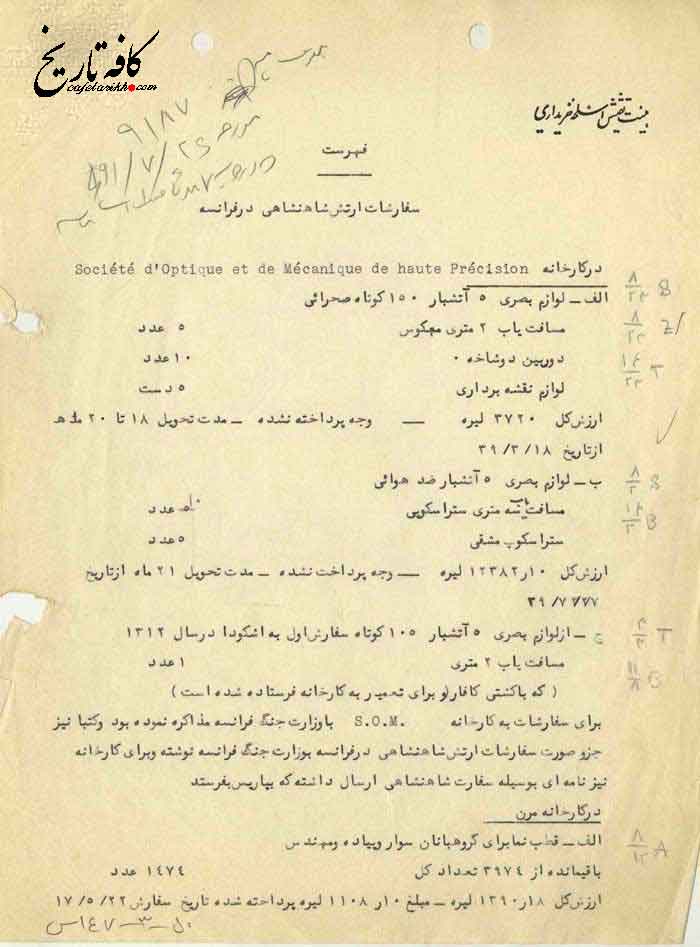 کافه تاریخ
cafetarikh.com
هیئت تفتیش اسلحه خریداری
۹۱۸۷
فهرست
سفارشات ارتش شاهنشاهی درفرانسه
درکارخانه Société d'Optique et de Mécanique de haute Précision
الف ــ لوازم بصری ۵ آتشبار ۱۵۰ کوتاه صحرائی
مسافت یاب ۲ متری معکوس ۵ عدد
دوربین دوشاخه ۰ ۱۰ عدد
لوازم نقشه برداری ۵ دست
ارزش کل ۳۷۲۰ لیره ــ وجه پرداخته نشده ــ مدت تحویل ۱۸ تا ۲۰ ماهه
ازتاریخ ۳۹/۳/۱۸
ب ــ لوازم بصری ۵ آتشبار ضد هوائی
مسافت یاب سه متری ستراسکوپی ۵ عدد
ستراسکوپ مشقی ۵ عدد
ارزش کل ۱۲۳۸۲ر۱۰ لیره ــ وجه پرداخت نشده ــ مدت تحویل ۲۱ ماه ازتاریخ
ج ــ ازلوازم بصری ۵ آتشبار ۱۰۵ کوتاه سفارش اول به اشکودا درسال ۱۳۱۲
مسافت یاب ۲ متری ۱ عدد
( که باکشتی کافارلو برای تعمیر به کارخانه فرستاده شده است )
برای سفارشات به کارخانه S.O.M. باوزارت جنگ فرانسه مذاکره نموده بود وکتبا نیز
جزو صورت سفارشات ارتش شاهنشاهی درفرانسه بوزارت جنگ فرانسه نوشته وبرای کارخانه
نیز نامه ای بوسیله سفارت شاهنشاهی ارسال داشته که بپاریس بفرستد
درکارخانه مرن
الف ــ قطب نما برای گروهبانان سوار وپیاده ومهندس
باقیمانده از ۳۹۷۴ تعداد کل ۱۴۷۴ عدد
ارزش کل ۱۳۹۰ر۱۸ لیره ــ مبلغ ۱۱۰۸ر۱۰ لیره پرداخته شده تاریخ سفارش ۱۷/۵/۲۲